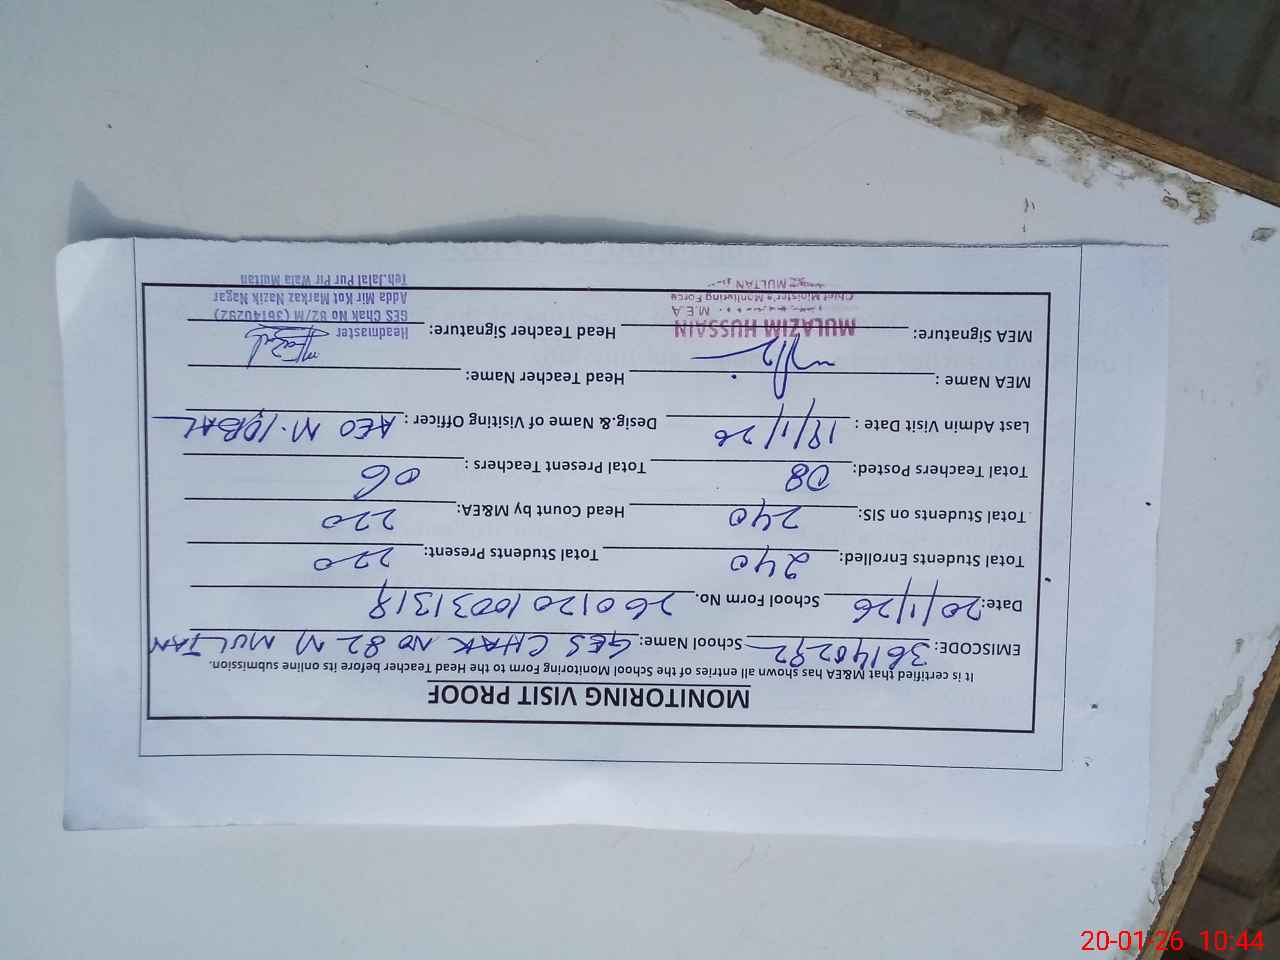 MONITORING VISIT PROOF
It is certified that M&EA has shown all entries of the School Monitoring Form to the Head Teacher before its online submission.
EMISCODE: 36140292 School Name: GES CHAK NO 82 M MULTAN
Date: 20/1/26 School Form No. 26012010031318
Total Students Enrolled: 240 Total Students Present: 220
Total Students on SIS: 240 Head Count by M&EA: 220
Total Teachers Posted: 08 Total Present Teachers : 06
Last Admin Visit Date : 19/1/26 Desig.& Name of Visiting Officer : AEO M. IQBAL
MEA Name : Head Teacher Name:
MEA Signature: Head Teacher Signature:
MULAZIM HUSSAIN
M.E.A
Chief Minister's Monitoring Force
MULTAN
Headmaster
GES Chak No 82/M (36140292)
Adda Mir Kot Markaz Nazik Nagar
Teh.Jalal Pur Pir Wala Multan
20-01-26 10:44